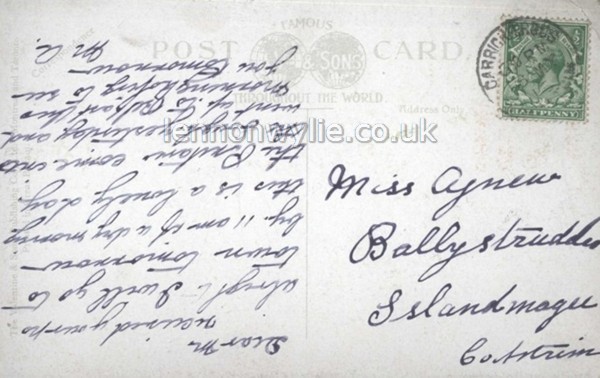 FAMOUS
POST CARD.
& SONS
THROUGHOUT THE WORLD.
Address Only
CARRICKFERGUS
HALFPENNY
lennonwylie.co.uk
Miss Agnew
Ballystrudder
Islandmagee
Co Antrim
Dear M
received your pc
alright I will go to
town tomorrow
by 11 am if a dry morning
this is a lovely day
the Captain came into
the Lough yesterday and
went up to Belfast this
morning hoping to see
you tomorrow
M A.